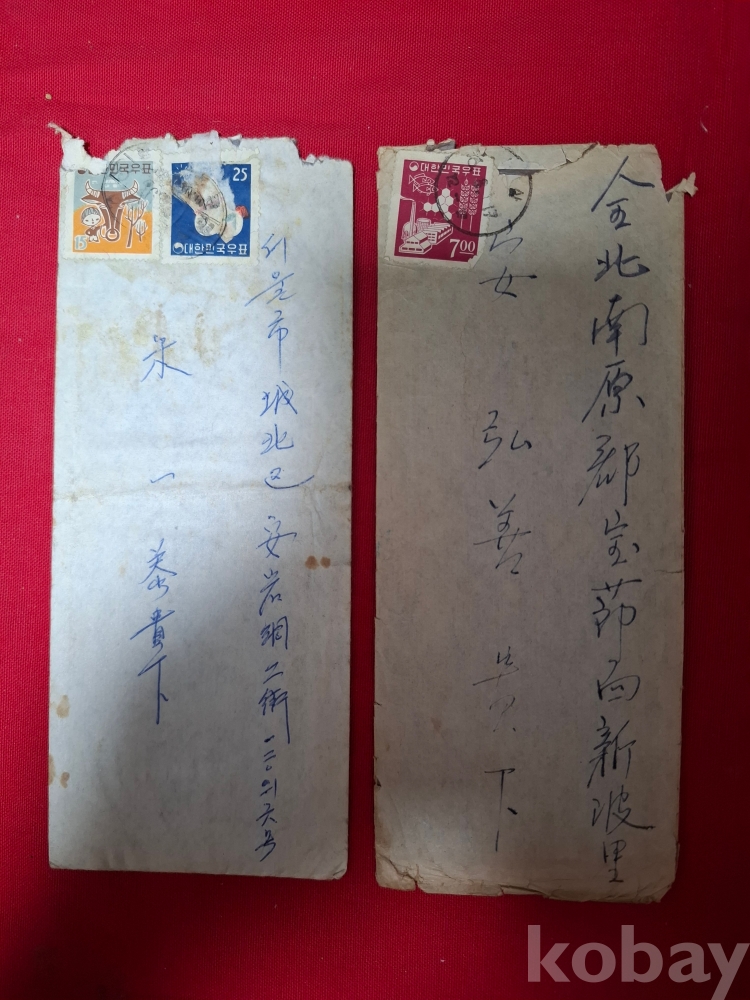 대한민국우표
15
25
대한민국우표
서울市 城北區 安岩洞 二街 一二〇의 六号
一 泰 貴下
대한민국우표
7.00
全北南原郡宝节面新波里
安 弘善 貴下
kobay